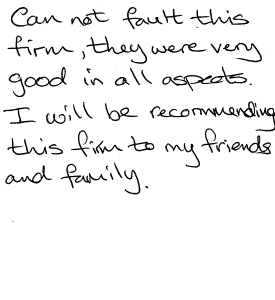 Can not fault this
firm, they were very
good in all aspects.
I will be recommending
this firm to my friends
and family.